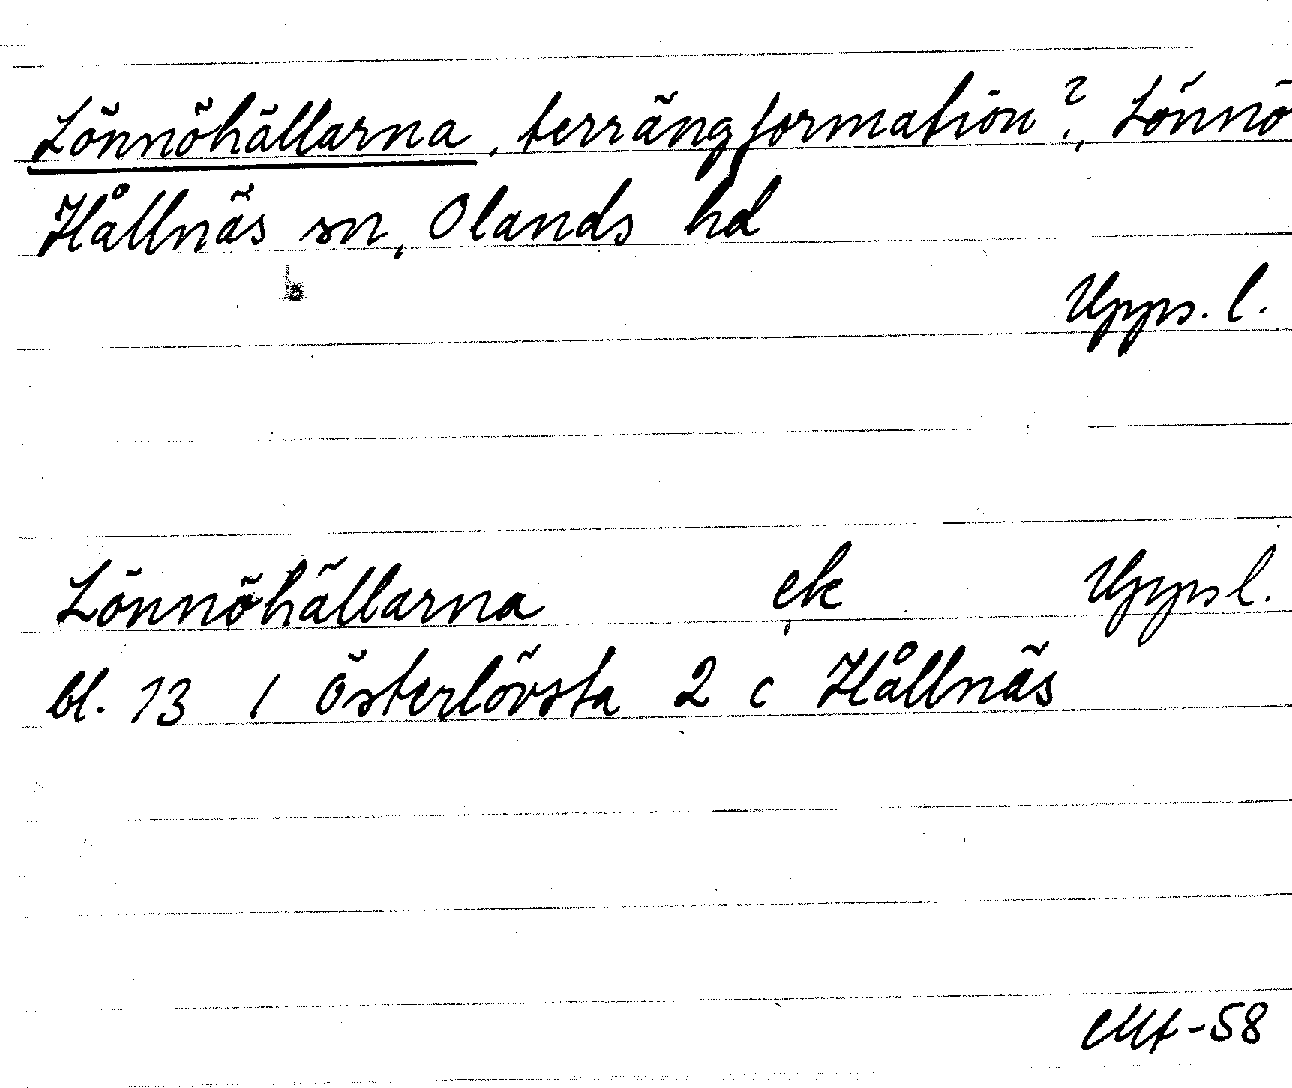 Lönnöhällarna, terrängformation?, Lönnö
Hållnäs sn, Olands hd
Upps. l.
Lönnöhällarna ek Upps l.
bl. 13 / Österlövsta 2 c Hållnäs
-58